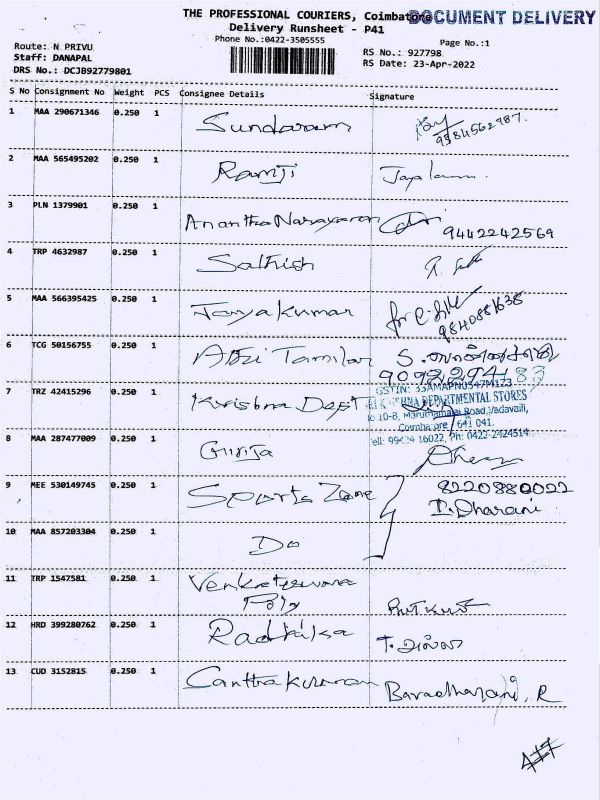 THE PROFESSIONAL COURIERS, Coimbatore
DOCUMENT DELIVERY
Delivery Runsheet - P41
Phone No.:0422-3505555
Page No.:1
Route: N PRIVU
Staff: DANAPAL
DRS No.: DCJB92779801
RS No.: 927798
RS Date: 23-Apr-2022
S No Consignment No Weight PCS Consignee Details Signature
1 MAA 290671346 0.250 1 Sundaram
2 MAA 565495202 0.250 1 Ramji
3 PLN 1379901 0.250 1 Anantha Narayanan 9442242569
4 TRP 4632987 0.250 1 Sathish
5 MAA 566395425 0.250 1 Jayakumar for
6 TCG 50156755 0.250 1 Tamilar S.
9092294183
7 TRZ 42415296 0.250 1 Krishna Dept
DEPARTMENTAL STORES
Maruthamalai Road, Vadavalli,
641 041.
16022, Ph: 0422-2424514
8 MAA 287477009 0.250 1 Girija
9 MEE 530149745 0.250 1 Sports Zone 8220880022
Dharani
10 MAA 857203304 0.250 1 Do
11 TRP 1547581 0.250 1 Venkateswara
Poly
12 HRD 399280762 0.250 1 Radhika
13 CUD 3152815 0.250 1 R